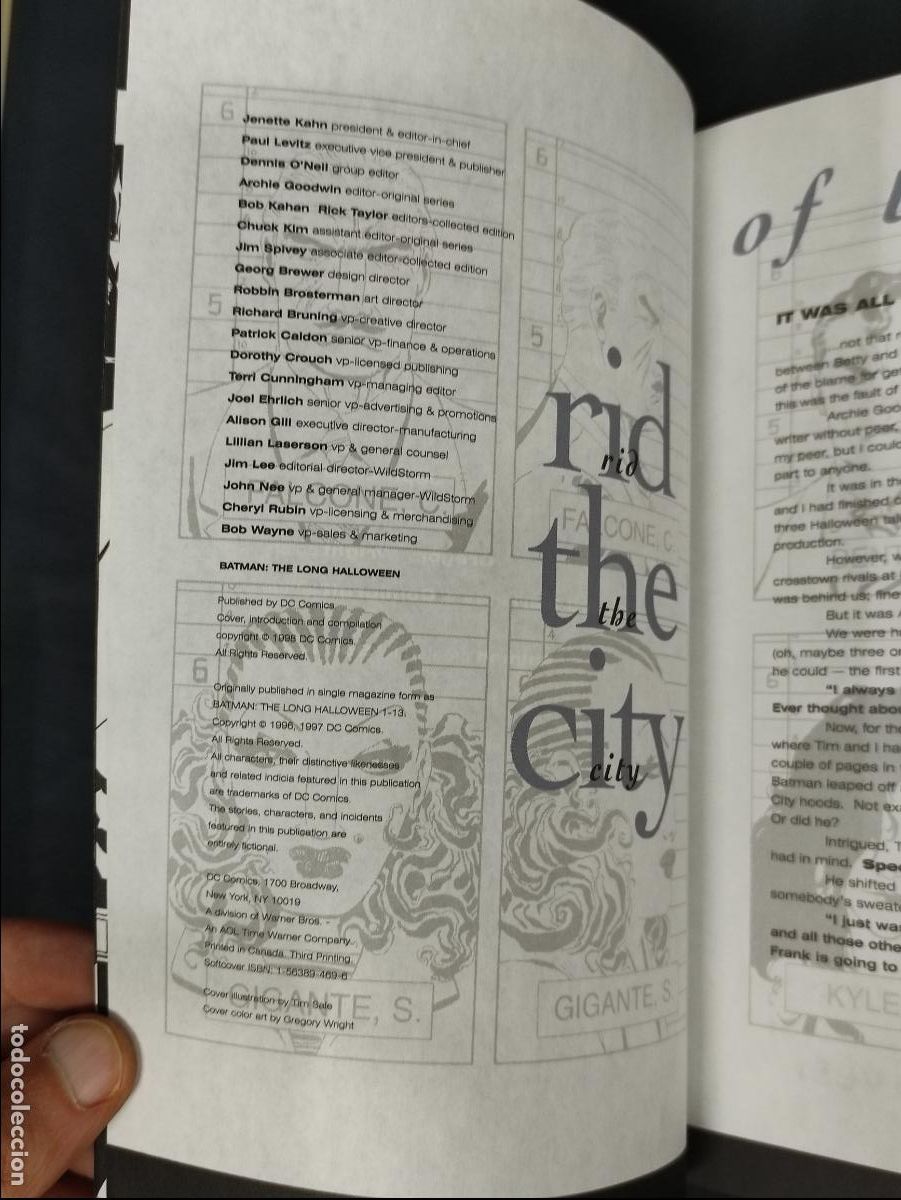 Jenette Kahn president & editor-in-chief
Paul Levitz executive vice president & publisher
Dennis O'Neil group editor
Archie Goodwin editor-original series
Bob Kahan Rick Taylor editors-collected edition
Chuck Kim assistant editor-original series
Jim Spivey associate editor-collected edition
Georg Brewer design director
Robbin Brosterman art director
Richard Bruning vp-creative director
Patrick Caldon senior vp-finance & operations
Dorothy Crouch vp-licensed publishing
Terri Cunningham vp-managing editor
Joel Ehrlich senior vp-advertising & promotions
Alison Gill executive director-manufacturing
Lillian Laserson vp & general counsel
Jim Lee editorial director-WildStorm
John Nee vp & general manager-WildStorm
Cheryl Rubin vp-licensing & merchandising
Bob Wayne vp-sales & marketing
BATMAN: THE LONG HALLOWEEN
Published by DC Comics.
Cover, introduction and compilation
copyright © 1998 DC Comics.
All Rights Reserved.
Originally published in single magazine form as
BATMAN: THE LONG HALLOWEEN 1-13.
Copyright © 1996, 1997 DC Comics.
All Rights Reserved.
All characters, their distinctive likenesses
and related indicia featured in this publication
are trademarks of DC Comics.
The stories, characters, and incidents
featured in this publication are
entirely fictional.
DC Comics, 1700 Broadway,
New York, NY 10019
A division of Warner Bros. -
An AOL Time Warner Company.
Printed in Canada. Third Printing.
Softcover ISBN: 1-56389-469-6
Cover illustration by Tim Sale
Cover color art by Gregory Wright
6
5
FALCONE, C.
6
5
FALCONE, C.
6
GIGANTE, S.
4
GIGANTE, S.
rid
rid
the
the
city
city
of
IT WAS ALL
...not that
between Betty and
of the blame for
this was the fault of
Archie
writer without peer,
my peer, but I could
part to anyone.
It was in the
and I had finished
three Halloween
production.
However,
crosstown rivals at
was behind us;
But it was
We were
(oh, maybe three or
he could — the first
"I always
Ever thought
Now, for the
where Tim and I
couple of pages in
Batman leaped off
City hoods. Not
Or did he?
Intrigued,
had in mind.
He shifted
somebody's
"I just
and all those
Frank is going to
KYLE
todocoleccion